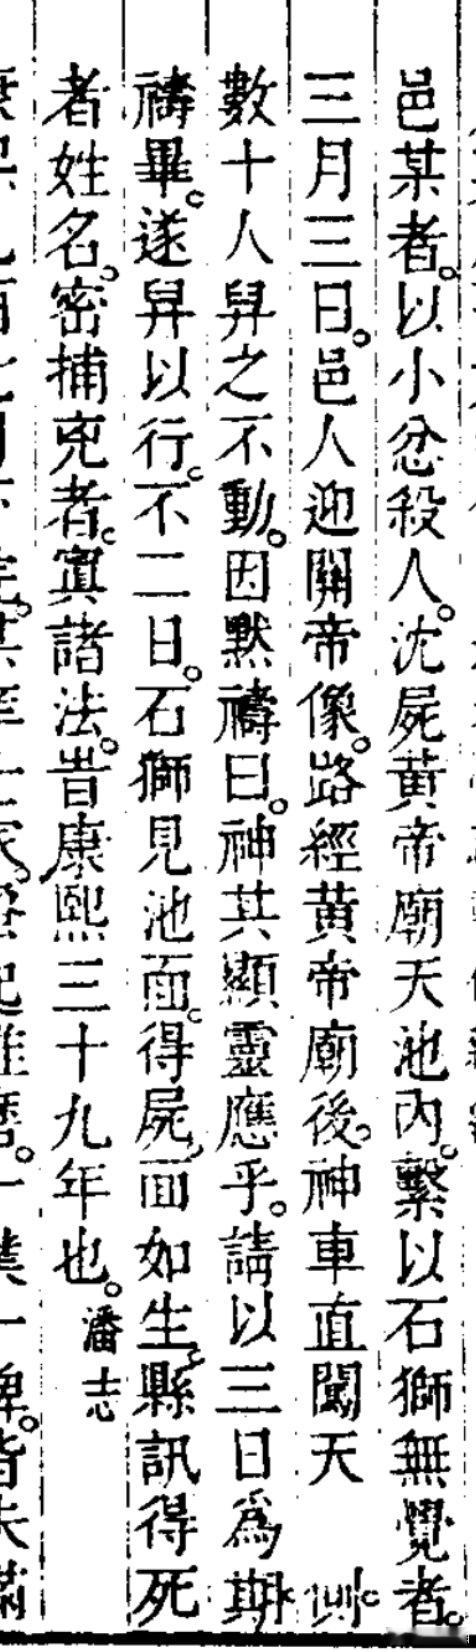 邑某者。以小忿殺人。沈屍黃帝廟天池內。繫以石獅無覺者。
三月三日。邑人迎關帝像。路經黃帝廟後。神車直闖天 側。
數十人舁之不動。因默禱曰。神其顯靈應乎。請以三日為期。
禱畢。遂舁以行。不二日。石獅見池面。得屍。面如生。縣訊得死
者姓名。密捕兇者。寘諸法。旹康熙三十九年也。潘志